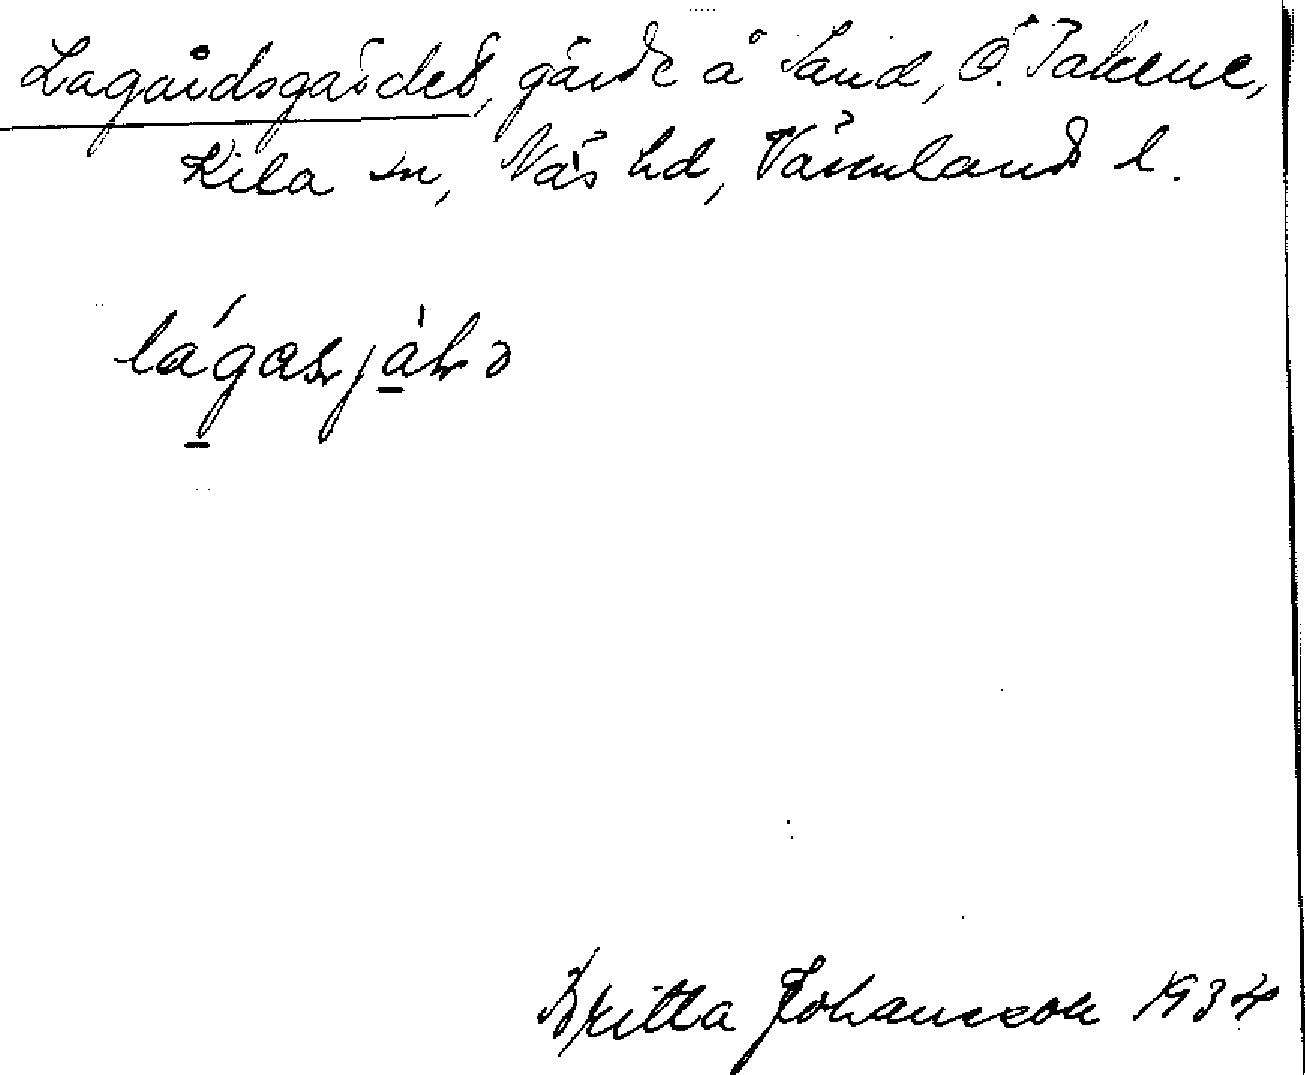 Lagårdsgärdet, gärde å Sand, Ö. Takene,
Kila sn, Näs hd, Värmlands l.
Britta Johansson 1934